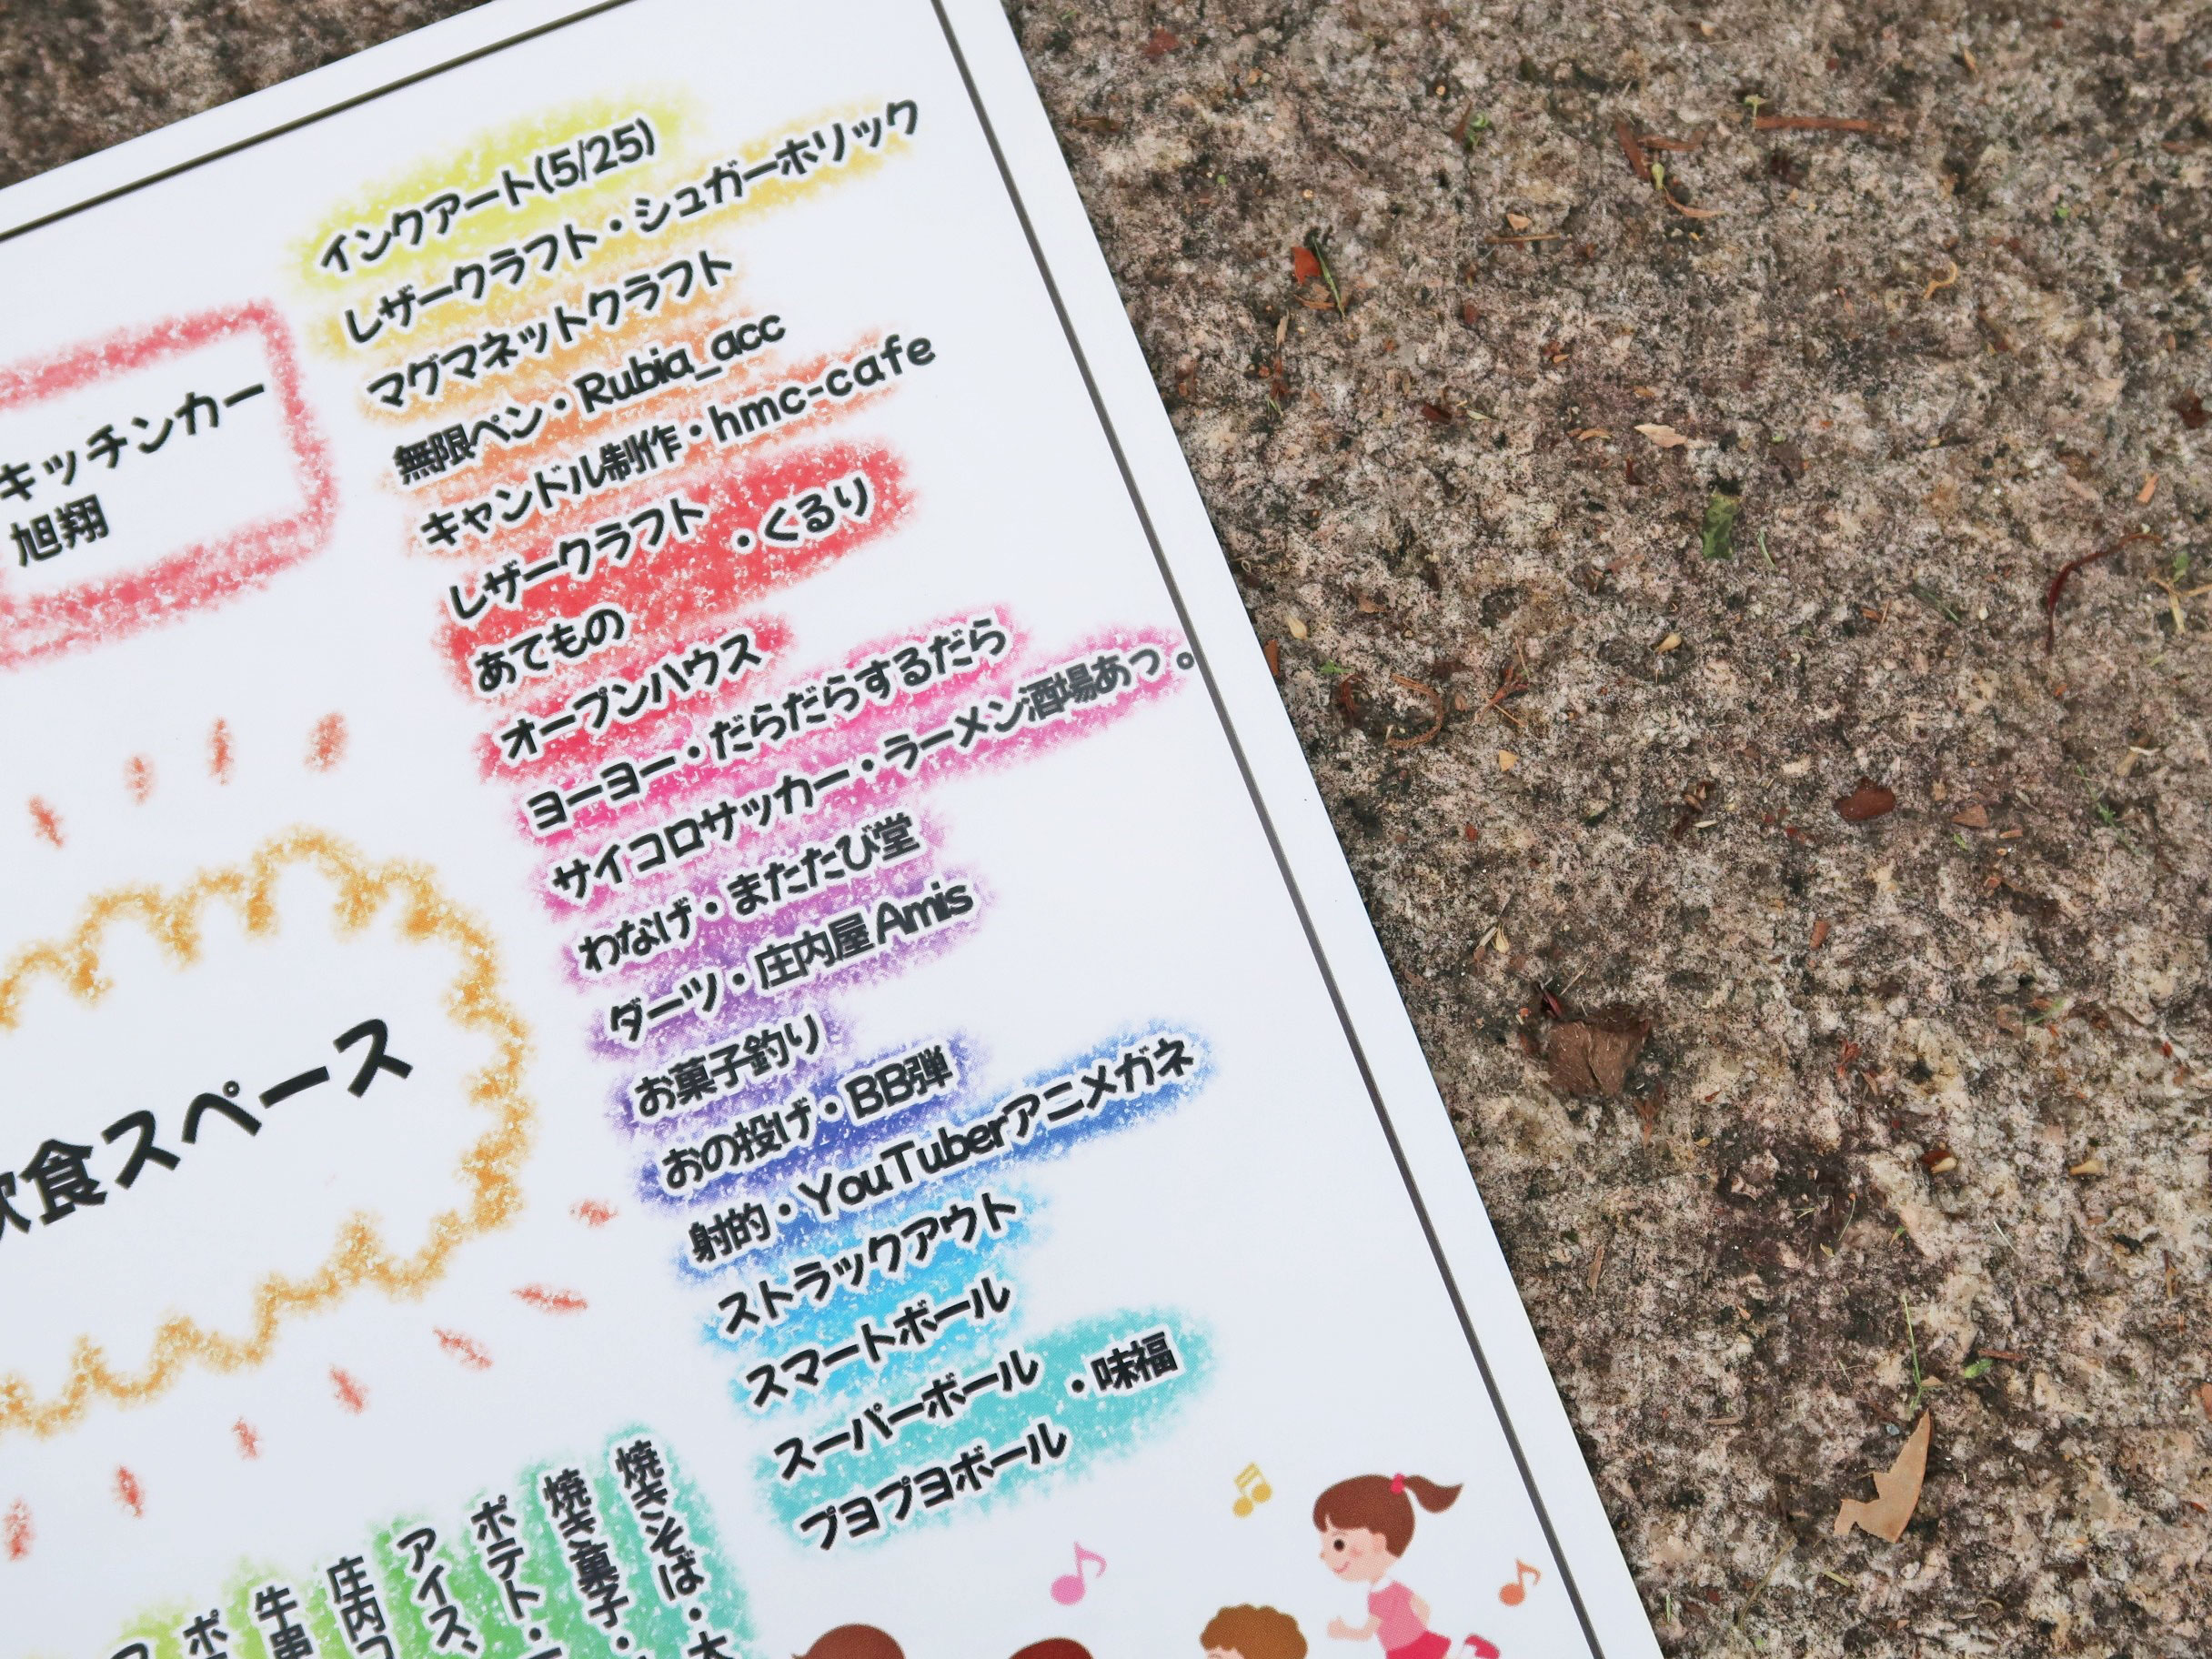 インクアート(5/25)
レザークラフト・シュガーホリック
マグマネットクラフト
無限ペン・Rubia_acc
キャンドル制作・hmc-cafe
レザークラフト
・くるり
あてもの
オープンハウス
ヨーヨー・だらだらするだら
サイコロサッカー・ラーメン酒場あっ。
わなげ・またたび堂
ダーツ・庄内屋Amis
お菓子釣り
おの投げ・BB弾
射的・YouTuberアニメガネ
ストラックアウト
スマートボール
スーパーボール
・味福
プヨプヨボール
キッチンカー
旭翔
飲食スペース
焼きそば・大
焼き菓子・
ポテト・
アイス、
庄内コ
牛串
ポ